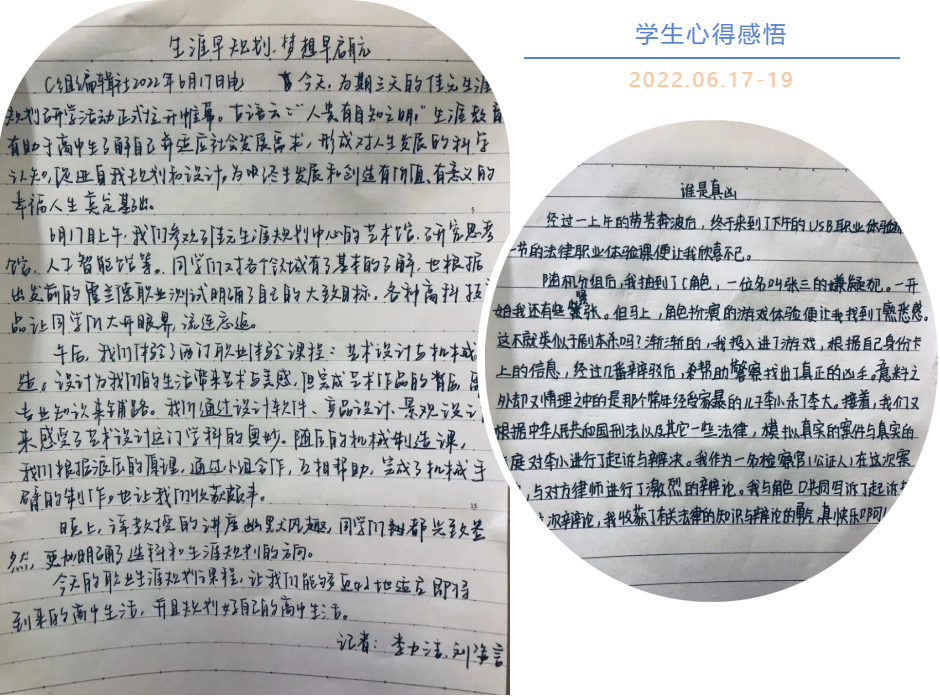 学生心得感悟
2022.06.17-19
生涯早规划,梦想早启航
C组编辑社2022年6月17日电 今天,为期三天的佳元生涯
规划研学活动正式拉开帷幕。古语云:“人贵有自知之明。”生涯教育
有助于高中生了解自己并适应社会发展需求,形成对人生发展的科学
认知,促进自我规划和设计,为中终生发展和创造有价值、有意义的
幸福人生奠定基础。
6月17日上午,我们参观了佳元生涯规划中心的艺术馆、研究思考
馆、人工智能馆等。同学们对各个领域有了基本的了解,也根据
出发前的霍兰德职业测试明确了自己的大致目标。各种高科技
品让同学们大开眼界,流连忘返。
午后,我们体验了两门职业体验课程:艺术设计与机械
造。设计为我们的生活带来艺术与美感,但完成艺术作品的背后
专业知识来铺路。我们通过设计软件、产品设计、景观设计
来感受了艺术设计这门学科的奥妙。随后的机械制造课,
我们根据液压的原理,通过小组合作,互相帮助,完成了机械手
臂的制作,也让我们收获颇丰。
晚上,教授的讲座幽默风趣,同学们都兴致盎
然,更加明确了选科和生涯规划的方向。
今天的职业生涯规划课程,让我们能够更好地适应即将
到来的高中生活,并且规划好自己的高中生活。
记者:李
谁是真凶
经过一上午的劳苦奔波后,终于来到了下午的USB职业体验
一节的法律职业体验课便让我欣喜不已。
随机分组后,我抽到了C角色,一位名叫张三的嫌疑犯。一开
始我还有些紧张。但马上,角色扮演的游戏体验便让我找到了熟悉感。
这不就类似于剧本杀吗?渐渐的,我投入进了游戏,根据自己身份卡
上的信息,经过几番辩驳后,帮助警察找出了真正的凶手。意料之
外却又情理之中的是那个常年经受家暴的儿子李小杀了李大。接着,我们又
根据中华人民共和国刑法以及其它一些法律,模拟真实的案件与真实的
庭对李小进行了起诉与辩决。我作为一名检察官(公证人)在这次案
,与对方律师进行了激烈的辩论。我与角色D共同写诉了起诉
次辩论,我收获了有关法律的知识与辩论的,真快乐啊